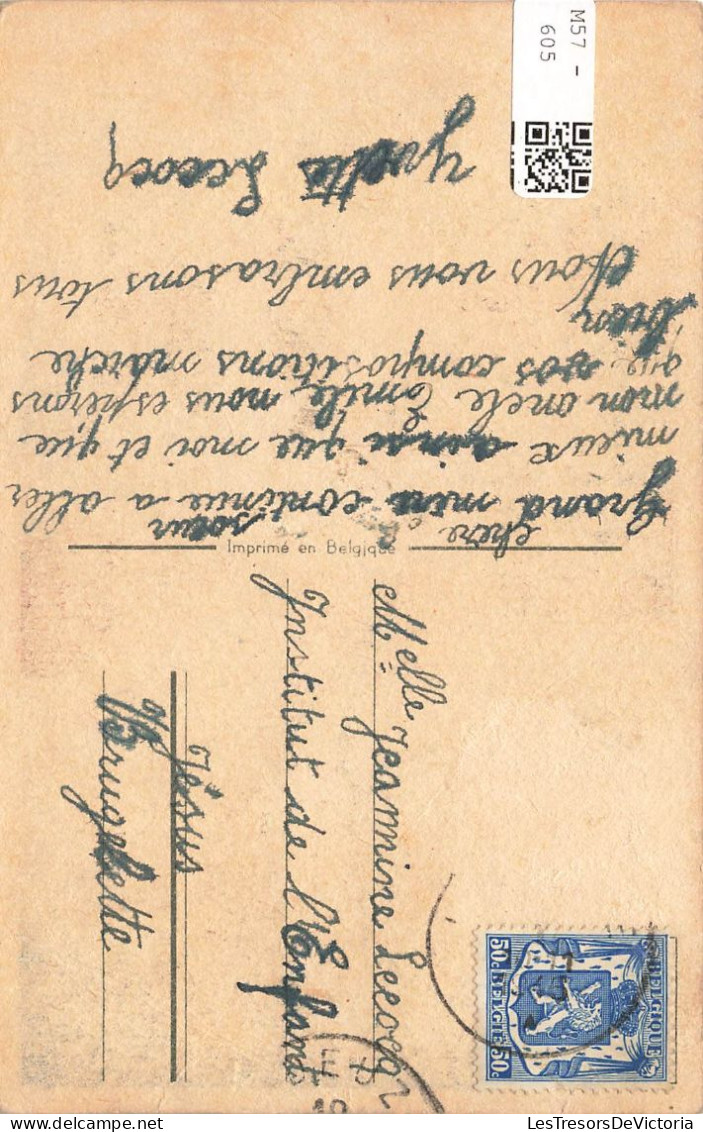 chère sœur
Grand mère continue a aller
mieux ainsi que moi et que
mon oncle Emile, nous espérons
que vos compositions marche
bien
Nous vous embrasons tous
Yvette Lecocq
Imprimé en Belgique
Melle Jeannine Lecocq
Institut de l'Enfant
Jésus
Brugelette
BELGIQUE
50c BELGIË 50c
M57 -
605
LesTresorsDeVictoria.com